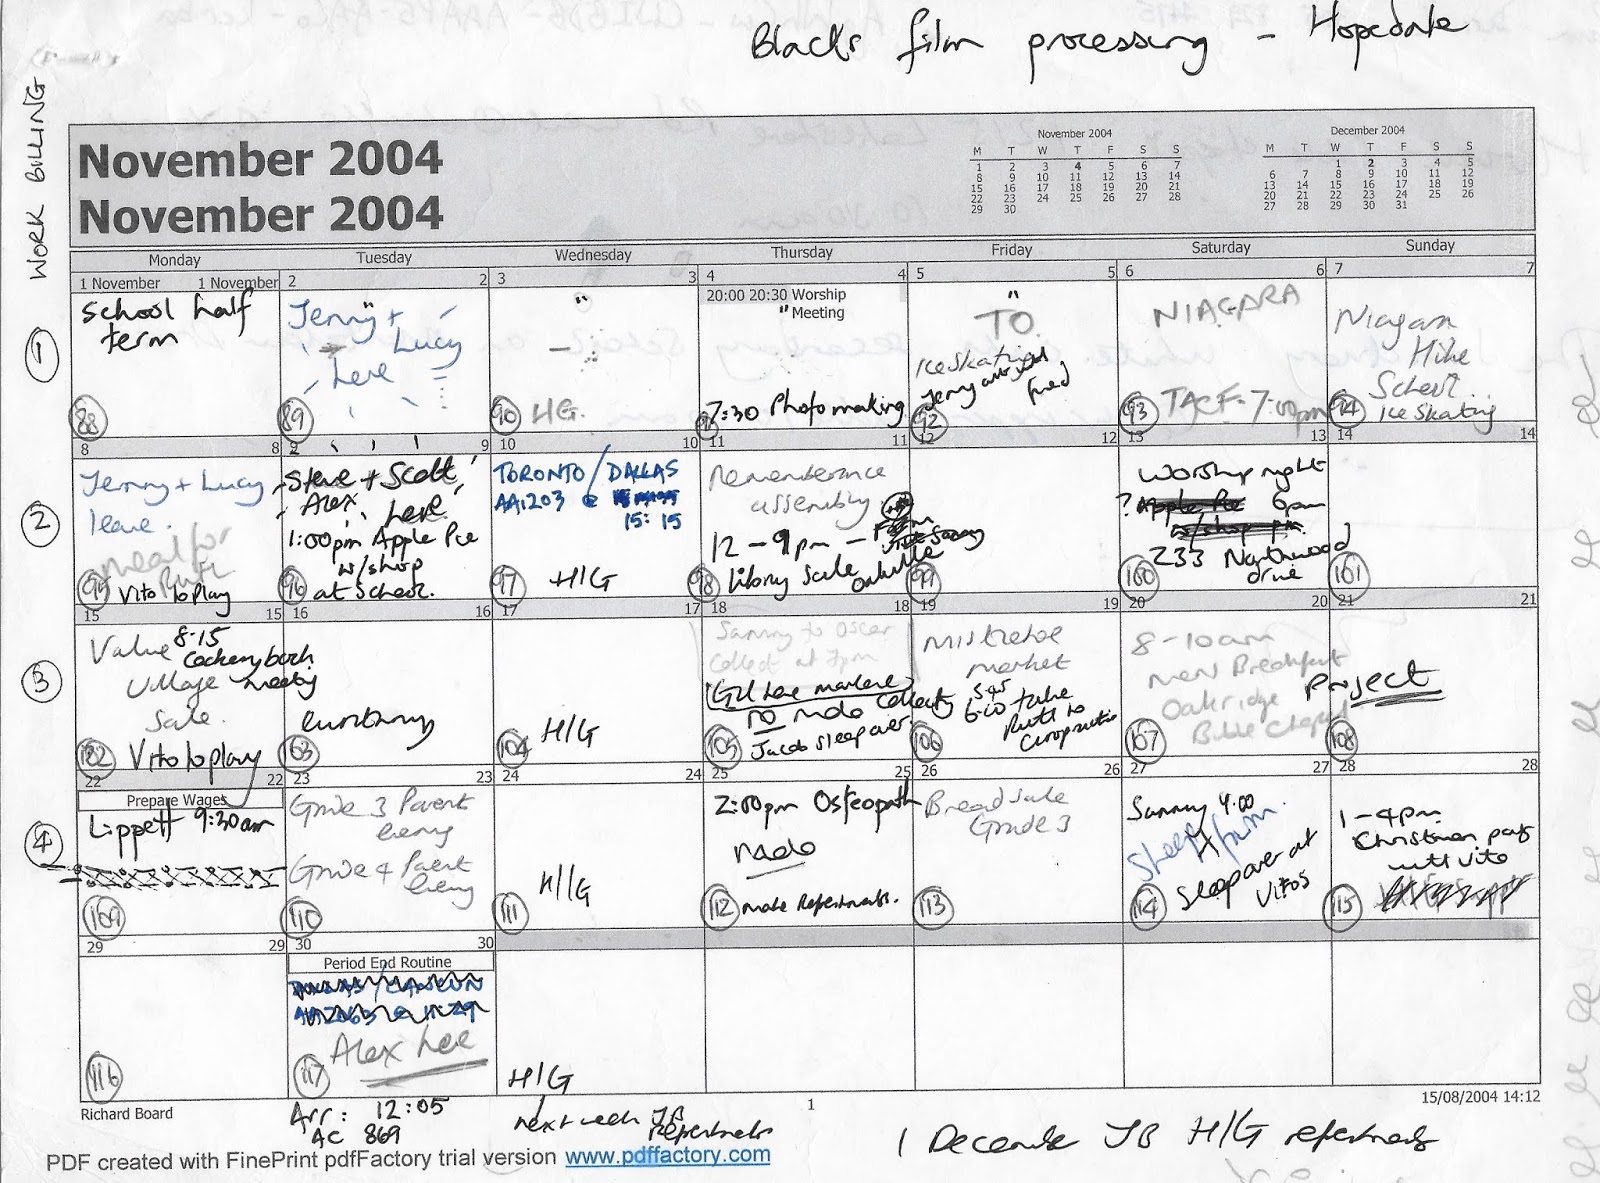 Blacks film processing - Hopedale
WORK BILLING
November 2004
November 2004
November 2004
M T W T F S S
1 2 3 4 5 6 7
8 9 10 11 12 13 14
15 16 17 18 19 20 21
22 23 24 25 26 27 28
29 30
December 2004
M T W T F S S
1 2 3 4 5
6 7 8 9 10 11 12
13 14 15 16 17 18 19
20 21 22 23 24 25 26
27 28 29 30 31
Monday Tuesday Wednesday Thursday Friday Saturday Sunday
1
1 November 1 November
School half
term
88
2 2
Jenny + Lucy
here
89
3 3
"
HG.
90
4 4
20:00 20:30 Worship
" Meeting
7:30 Photo making
5 5
"
TO.
Ice Skating
92
6 6
NIAGARA
TACF - 7:00pm
93
7 7
Niagara
Hike
School
Ice Skating
94
2
8 8
Jenny + Lucy
leave.
meal for
Ruth
Vito to play
95
9 9
Steve + Scott
Alex here
1:00pm Apple Pie
w/shop
at School.
96
10 10
TORONTO / DALLAS
AA1203 @
15:15
H/G
97
11 11
Rememberance
assembly
12 - 9pm -
library Sale Oakville
98
12 12
99
13 13
Worship night
? Apple Pie 6pm
w/shop pm.
233 Northwood
drive
100
14 14
101
3
15 15
Value 8-15
Village meeting
Sale.
Vito to play
102
16 16
103
17 17
H/G
104
18 18
Sammy to Oscar
Collect at 7pm
no nado collecty
Jacob sleepover.
105
19 19
Mistletoe
market
5-45
6-00 take
Ruth to
Chiropractic
106
20 20
8-10am
mens Breakfast
Oakridge
Bible Chapel
107
21 21
PROJECT
108
4
22 22
Prepare Wages
Lippett 9:30am
109
23 23
Grade 3 Parent
Grade 4 Parent
110
24 24
H/G
111
25 25
2:00pm Osteopath
nado
112
26 26
Bread sale
Grade 3
113
27 27
Sammy 4.00
Sleepover at
Vitos
114
28 28
1-4pm
Christmas party
with Vito
115
29 29
116
30 30
Period End Routine
DALLAS / CANCUN
Alex here
117
H/G
Richard Board
1
15/08/2004 14:12
Arr: 12:05
AC 869
next week JB
1 December JB H/G
PDF created with FinePrint pdfFactory trial version www.pdffactory.com